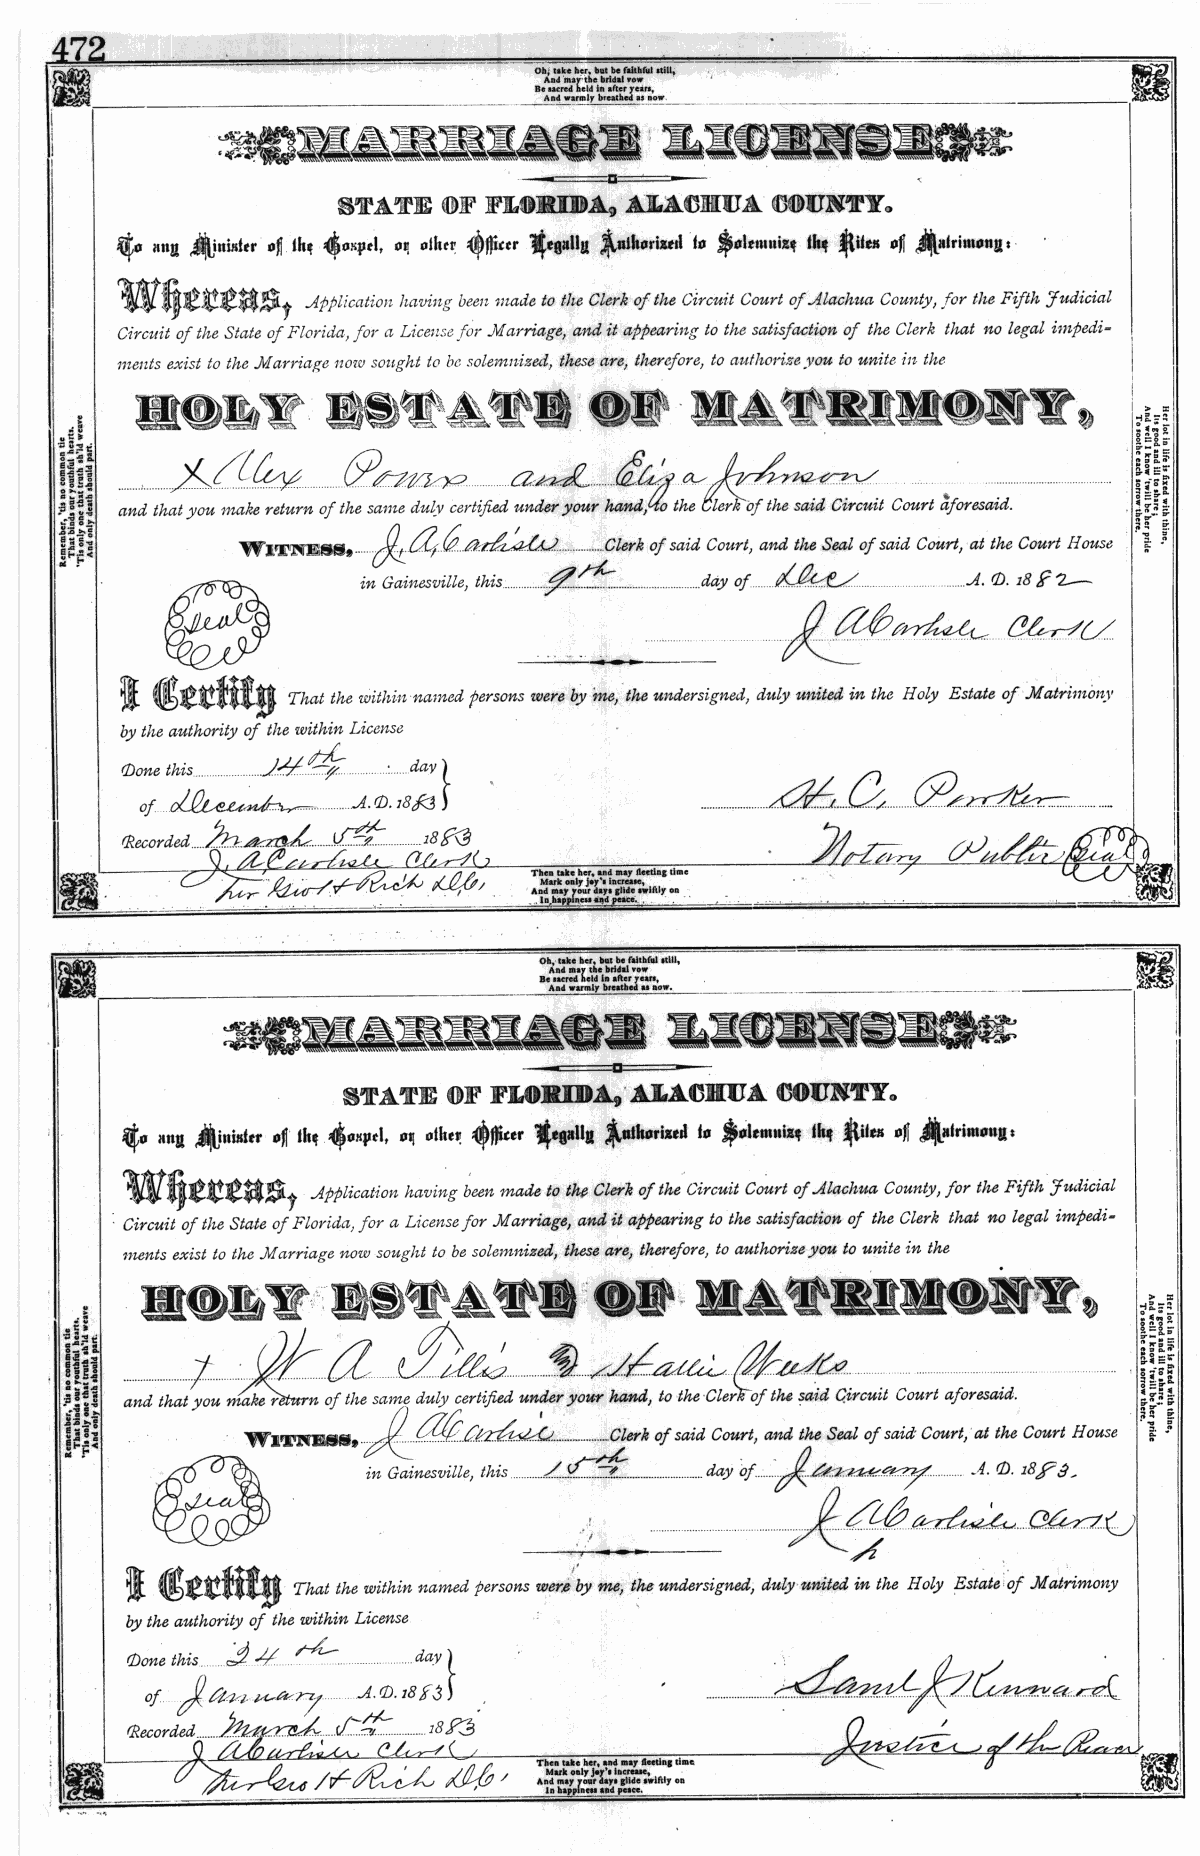 472
Oh, take her, but be faithful still,
And may the bridal vow
Be sacred held in after years,
And warmly breathed as now.
MARRIAGE LICENSE
STATE OF FLORIDA, ALACHUA COUNTY.
To any Minister of the Gospel, or other Officer Legally Authorized to Solemnize the Rites of Matrimony:
Whereas, Application having been made to the Clerk of the Circuit Court of Alachua County, for the Fifth Judicial
Circuit of the State of Florida, for a License for Marriage, and it appearing to the satisfaction of the Clerk that no legal impedi-
ments exist to the Marriage now sought to be solemnized, these are, therefore, to authorize you to unite in the
HOLY ESTATE OF MATRIMONY,
x Alex Powers and Eliza Johnson
and that you make return of the same duly certified under your hand, to the Clerk of the said Circuit Court aforesaid.
WITNESS, J. A. Carlisle Clerk of said Court, and the Seal of said Court, at the Court House
in Gainesville, this 9th day of Dec A. D. 1882
Seal
J A Carlisle Clerk
I Certify That the within named persons were by me, the undersigned, duly united in the Holy Estate of Matrimony
by the authority of the within License
Done this 14th day
of December A.D. 1883
H. C. Parker
Recorded March 5th 1883
Notary Public Seal
J. A Carlisle Clerk
per Geo H Rich D.C.
Then take her, and may fleeting time
Mark only joy's increase,
And may your days glide swiftly on
In happiness and peace.
Remember, 'tis no common tie
That binds our youthful hearts,
'Tis only one that truth sh'ld weave
And only death should part.
Her lot in life is fixed with thine,
Its good and ill to share;
And well I know 'twill be her pride
To soothe each sorrow there.
Oh, take her, but be faithful still,
And may the bridal vow
Be sacred held in after years,
And warmly breathed as now.
MARRIAGE LICENSE
STATE OF FLORIDA, ALACHUA COUNTY.
To any Minister of the Gospel, or other Officer Legally Authorized to Solemnize the Rites of Matrimony:
Whereas, Application having been made to the Clerk of the Circuit Court of Alachua County, for the Fifth Judicial
Circuit of the State of Florida, for a License for Marriage, and it appearing to the satisfaction of the Clerk that no legal impedi-
ments exist to the Marriage now sought to be solemnized, these are, therefore, to authorize you to unite in the
HOLY ESTATE OF MATRIMONY,
x W A Tillis & Hallie Weeks
and that you make return of the same duly certified under your hand, to the Clerk of the said Circuit Court aforesaid.
WITNESS, J A Carlisle Clerk of said Court, and the Seal of said Court, at the Court House
in Gainesville, this 15th day of January A. D. 1883.
Seal
J A Carlisle Clerk
I Certify That the within named persons were by me, the undersigned, duly united in the Holy Estate of Matrimony
by the authority of the within License
Done this 24th day
of January A.D. 1883
Saml J Kennard
Recorded March 5th 1883
Justice of the Peace
J A Carlisle Clerk
per Geo H Rich D.C.
Then take her, and may fleeting time
Mark only joy's increase,
And may your days glide swiftly on
In happiness and peace.
Remember, 'tis no common tie
That binds our youthful hearts,
'Tis only one that truth sh'ld weave
And only death should part.
Her lot in life is fixed with thine,
Its good and ill to share;
And well I know 'twill be her pride
To soothe each sorrow there.